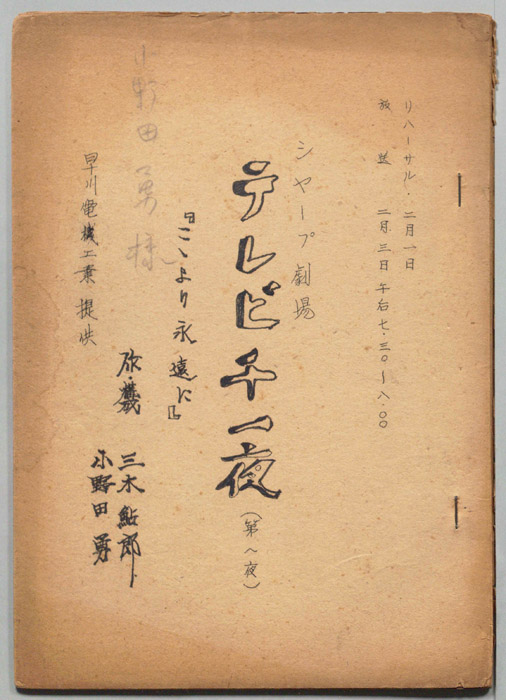 リハーサル・二月一日
放送 二月三日午后七・三〇〜八・〇〇
シャープ劇場
テレビ千一夜
(第一夜)
『こゝより永遠に』
作・構
三木鮎郎
小野田勇
小野田勇様
早川電機工業・提供